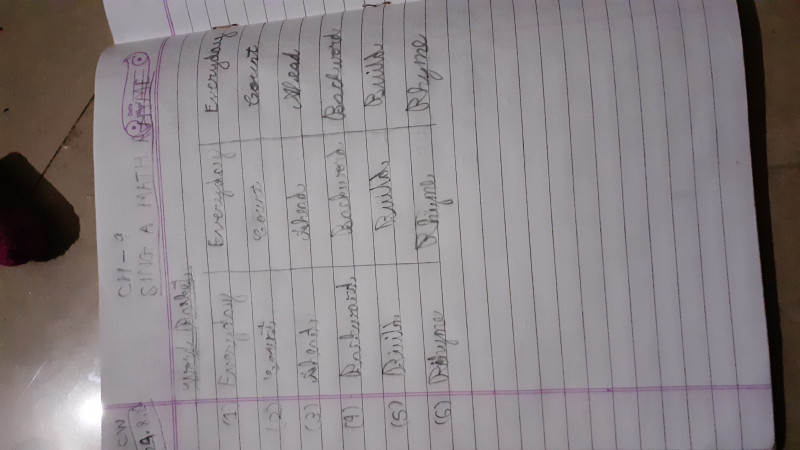 CW
CH - 9
SING A MATH RHYME
1) Everyday Everyday Everyday
(2) Count Count Count
(3) Ahead Ahead Ahead
(4) Backword Backword Backword
(5) Build Build Build
(6) Rhyme Rhyme Rhyme